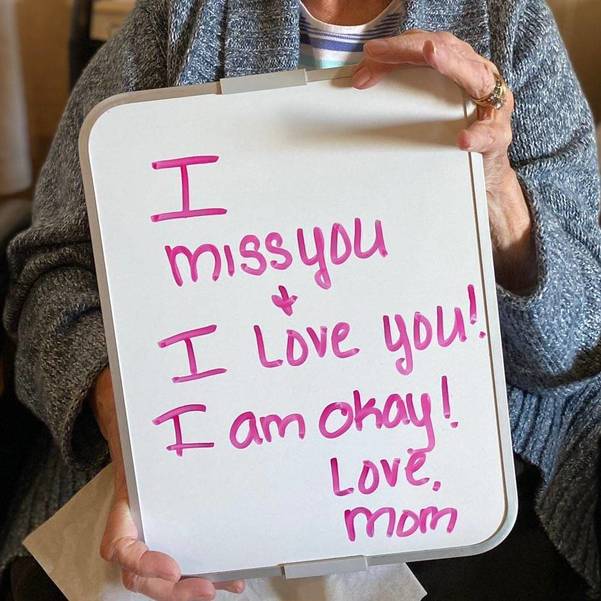 I
miss you
+
I Love you!
I am okay!
Love,
mom